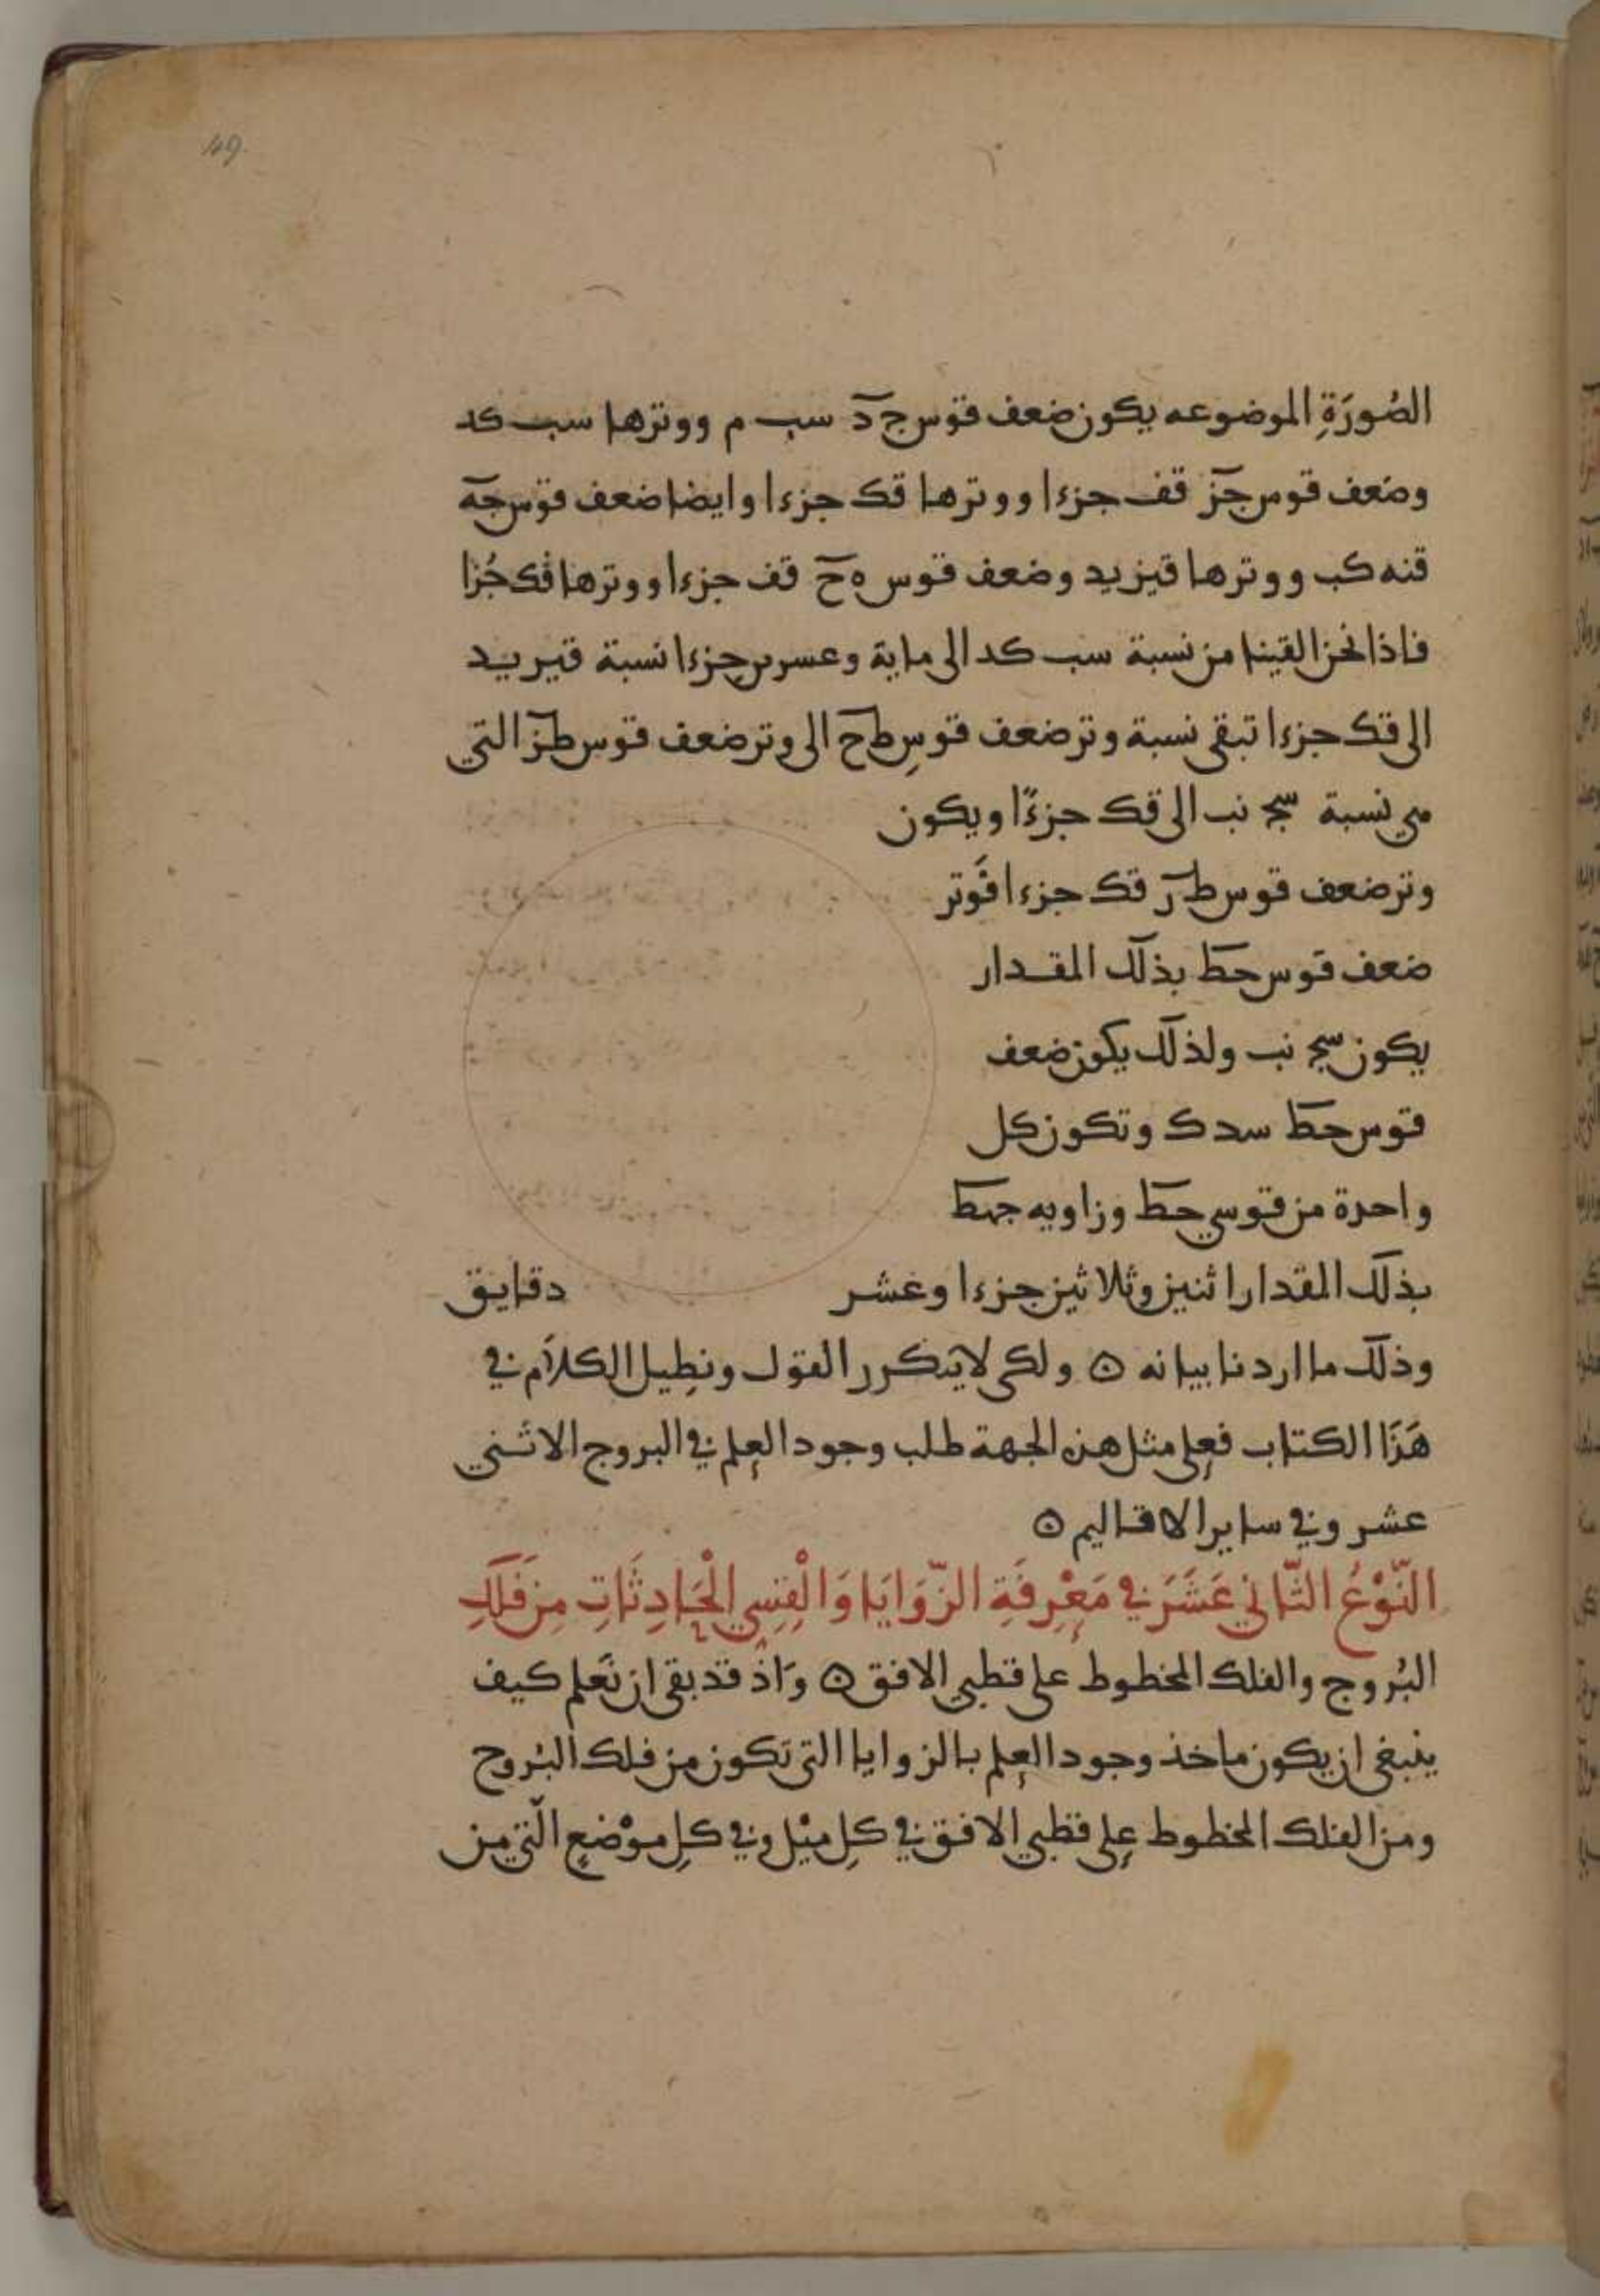 49.
الصُورَةِ الموضوعه يكون ضعف قوس ج د سب م ووترها سب كد
وضعف قوس جز قف جزءا ووترها قك جزءا وايضا ضعف قوس جه
قنه كب ووترها قيز يد وضعف قوس ه ح قف جزءا ووترها قك جُزا
فاذا نحن القينا من نسبة سب كد الى ماية وعسرين جزءا نسبة قيز يد
الى قك جزءا تبقى نسبة وتر ضعف قوسِ طح الى وتر ضعف قوس طز التي
هي نسبة سج نب الى قك جزءًا ويكون
وتر ضعف قوس طز قك جزءا فَوتر
ضعف قوس حط بذلك المقدار
يكون سج نب ولذلك يكون ضعف
قوس حط سد ك وتكون كل
واحدة من قوسي حط وزاويه جهط
بذلك المقدار اثنين وثلاثين جزءا وعشر دقايق
وذلك ما اردنا بيانه ۞ ولكى لا يتكرر القول ونطيل الكلام في
هَذَا الكتاب فعلى مثل هذه الجهة طلب وجود العلم في البروج الاثني
عشر وفي ساير الاقاليم ۞
النَّوْعُ الثَّاني عَشَرَ في مَعْرِفَةِ الزَّوَايَا وَالْقِسِي الْحَادِثَاتِ مِن فَلَكِ
البُروج والفلك المخطوط على قطبي الافق ۞ وَاذ قد بقى ان نَعلم كيف
ينبغى ان يكون ماخذ وجود العلم بالزوايا التى تكون من فلك البُروج
ومن الفلك المخطوط على قطبي الافق في كل ميْل وفي كل موْضع الّتي من